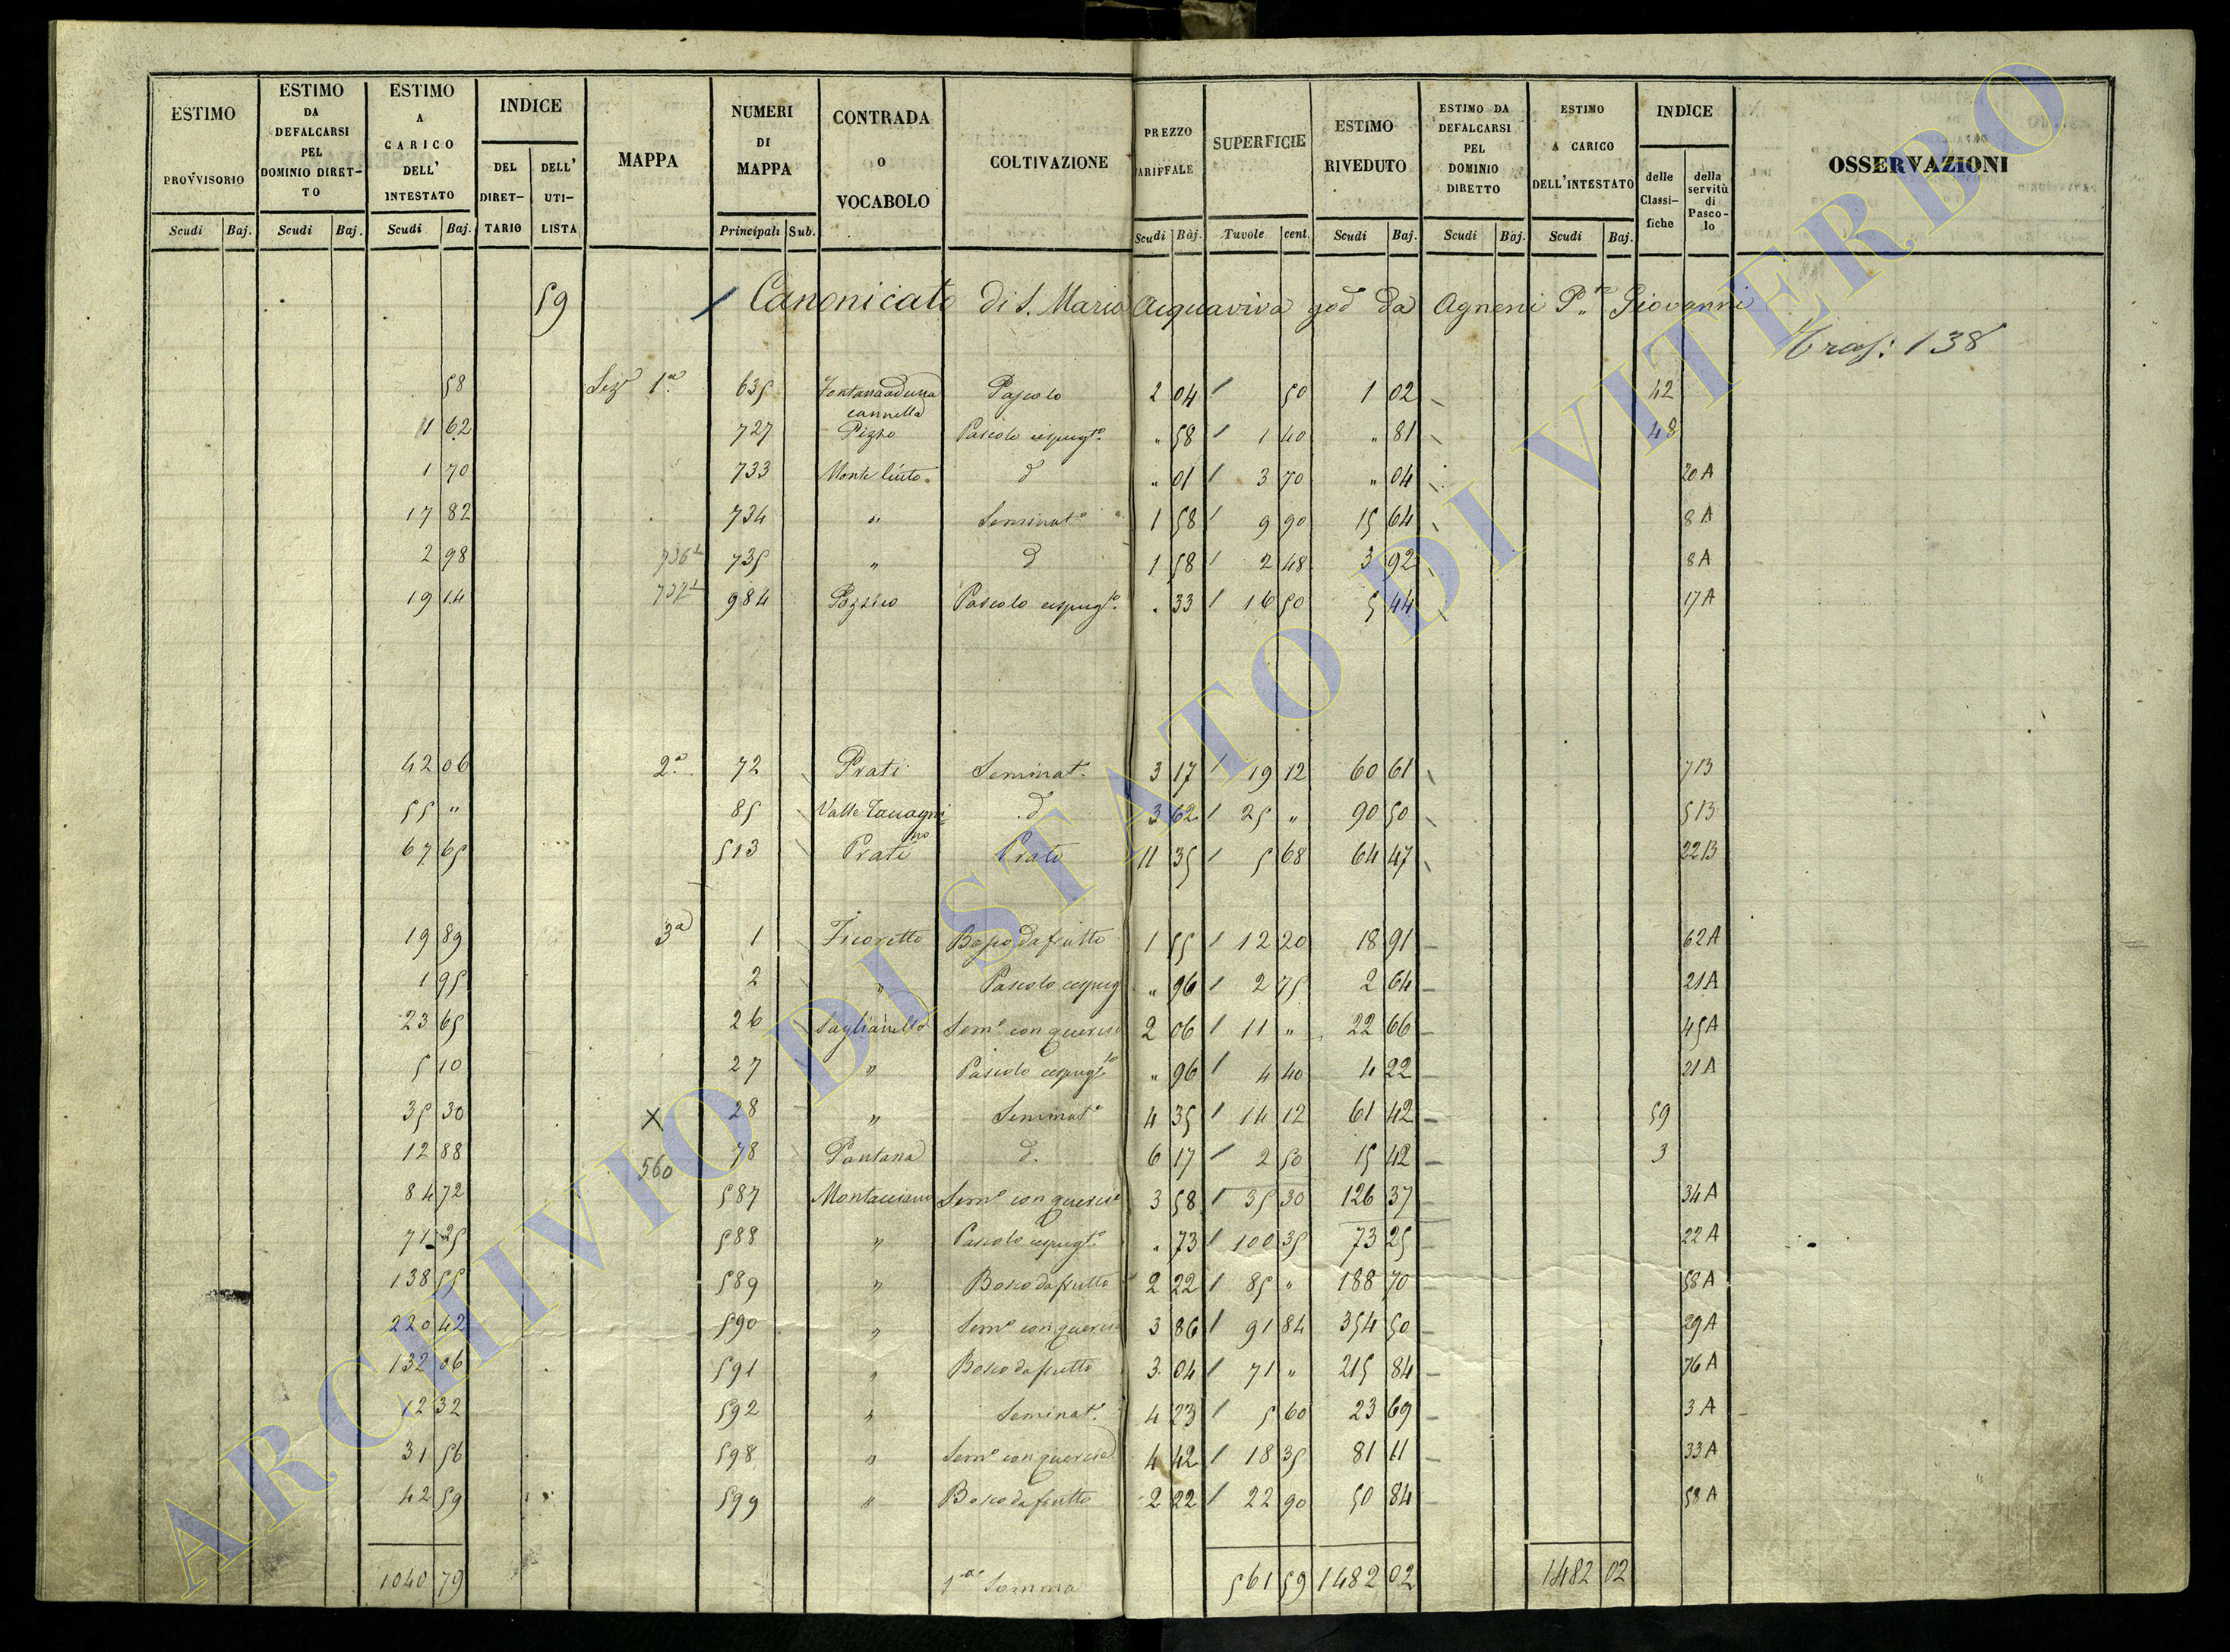 ESTIMO PROVVISORIO | ESTIMO DA DEFALCARSI PEL DOMINIO DIRET-TO | ESTIMO A CARICO DELL' INTESTATO | INDICE | MAPPA | NUMERI DI MAPPA | CONTRADA O VOCABOLO | COLTIVAZIONE | PREZZO TARIFFALE | SUPERFICIE | ESTIMO RIVEDUTO | ESTIMO DA DEFALCARSI PEL DOMINIO DIRETTO | ESTIMO A CARICO DELL'INTESTATO | INDICE | OSSERVAZIONI
DEL DIRET-TARIO | DELL' UTI-LISTA | delle Classi-fiche | della servitù di Pasco-lo
Scudi | Baj. | Scudi | Baj. | Scudi | Baj. | Principali | Sub. | Scudi | Baj. | Tavole | cent. | Scudi | Baj. | Scudi | Baj. | Scudi | Baj.
59 Canonicato di S. Maria Acquaviva god da Agneni P. Giovanni
Trasf: 138
58 Sez 1a 635 Pascolo 2 04 50 1 02 42
cannella
1 62 727 Pizzo Pascolo cespugto " 58 1 40 " 81 48
1 70 733 Monte d " 01 3 70 " 04 20A
17 82 734 " Seminato 1 58 9 90 15 64 8A
2 98 736 735 " d 1 58 2 48 3 92 8A
19 14 737 984 Pascolo cespugto " 33 16 50 5 44 17A
42 06 2a 72 Prati Seminato 3 17 19 12 60 61 7B
55 " 85 Valle d 3 62 25 " 90 50 5B
67 65 513 Prati Prato 11 35 5 68 64 47 22B
19 89 3a 1 Ficoretto Bosco da frutto 1 55 12 20 18 91 62A
1 95 2 " Pascolo cespug " 96 2 75 2 64 21A
23 65 26 Saglianello Semo con querce 2 06 11 " 22 66 45A
5 10 27 " Pascolo cespugto " 96 4 40 4 22 21A
35 30 X 28 " Seminato 4 35 14 12 61 42 59
12 88 560 78 Pantana d. 6 17 2 50 15 42 3
84 72 587 Montacciano Semo con querce 3 58 35 30 126 37 34A
71 25 588 " Pascolo cespugto " 73 100 35 73 25 22A
138 55 589 " Bosco da frutto 2 22 85 " 188 70 58A
220 42 590 " Semo con querce 3 86 91 84 354 50 29A
132 06 591 " Bosco da frutto 3 04 71 " 215 84 76A
12 32 592 " Seminato 4 23 5 60 23 69 3A
31 56 598 " Semo con querce 4 42 18 35 81 11 33A
42 59 599 " Bosco da frutto 2 22 22 90 50 84 58A
1040 79 1a Somma 561 59 1482 02 1482 02
ARCHIVIO DI STATO DI VITERBO